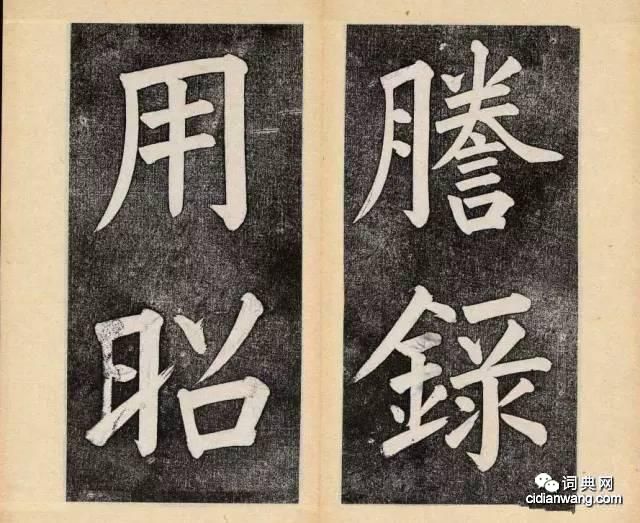 謄錄
用昭
词典网
cidianwang.com